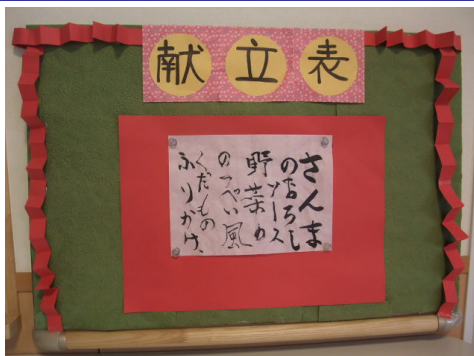 献立表
さんま
のおろし
ソース
野菜の
のっぺい風
くだもの
ふりかけ